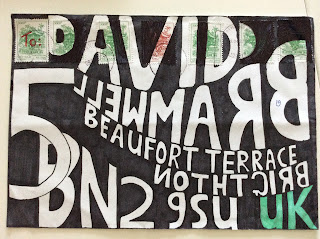 To:
DAVID
BRAMWELL
5 BEAUFORT TERRACE
BRIGHTON
BN2 9SU UK